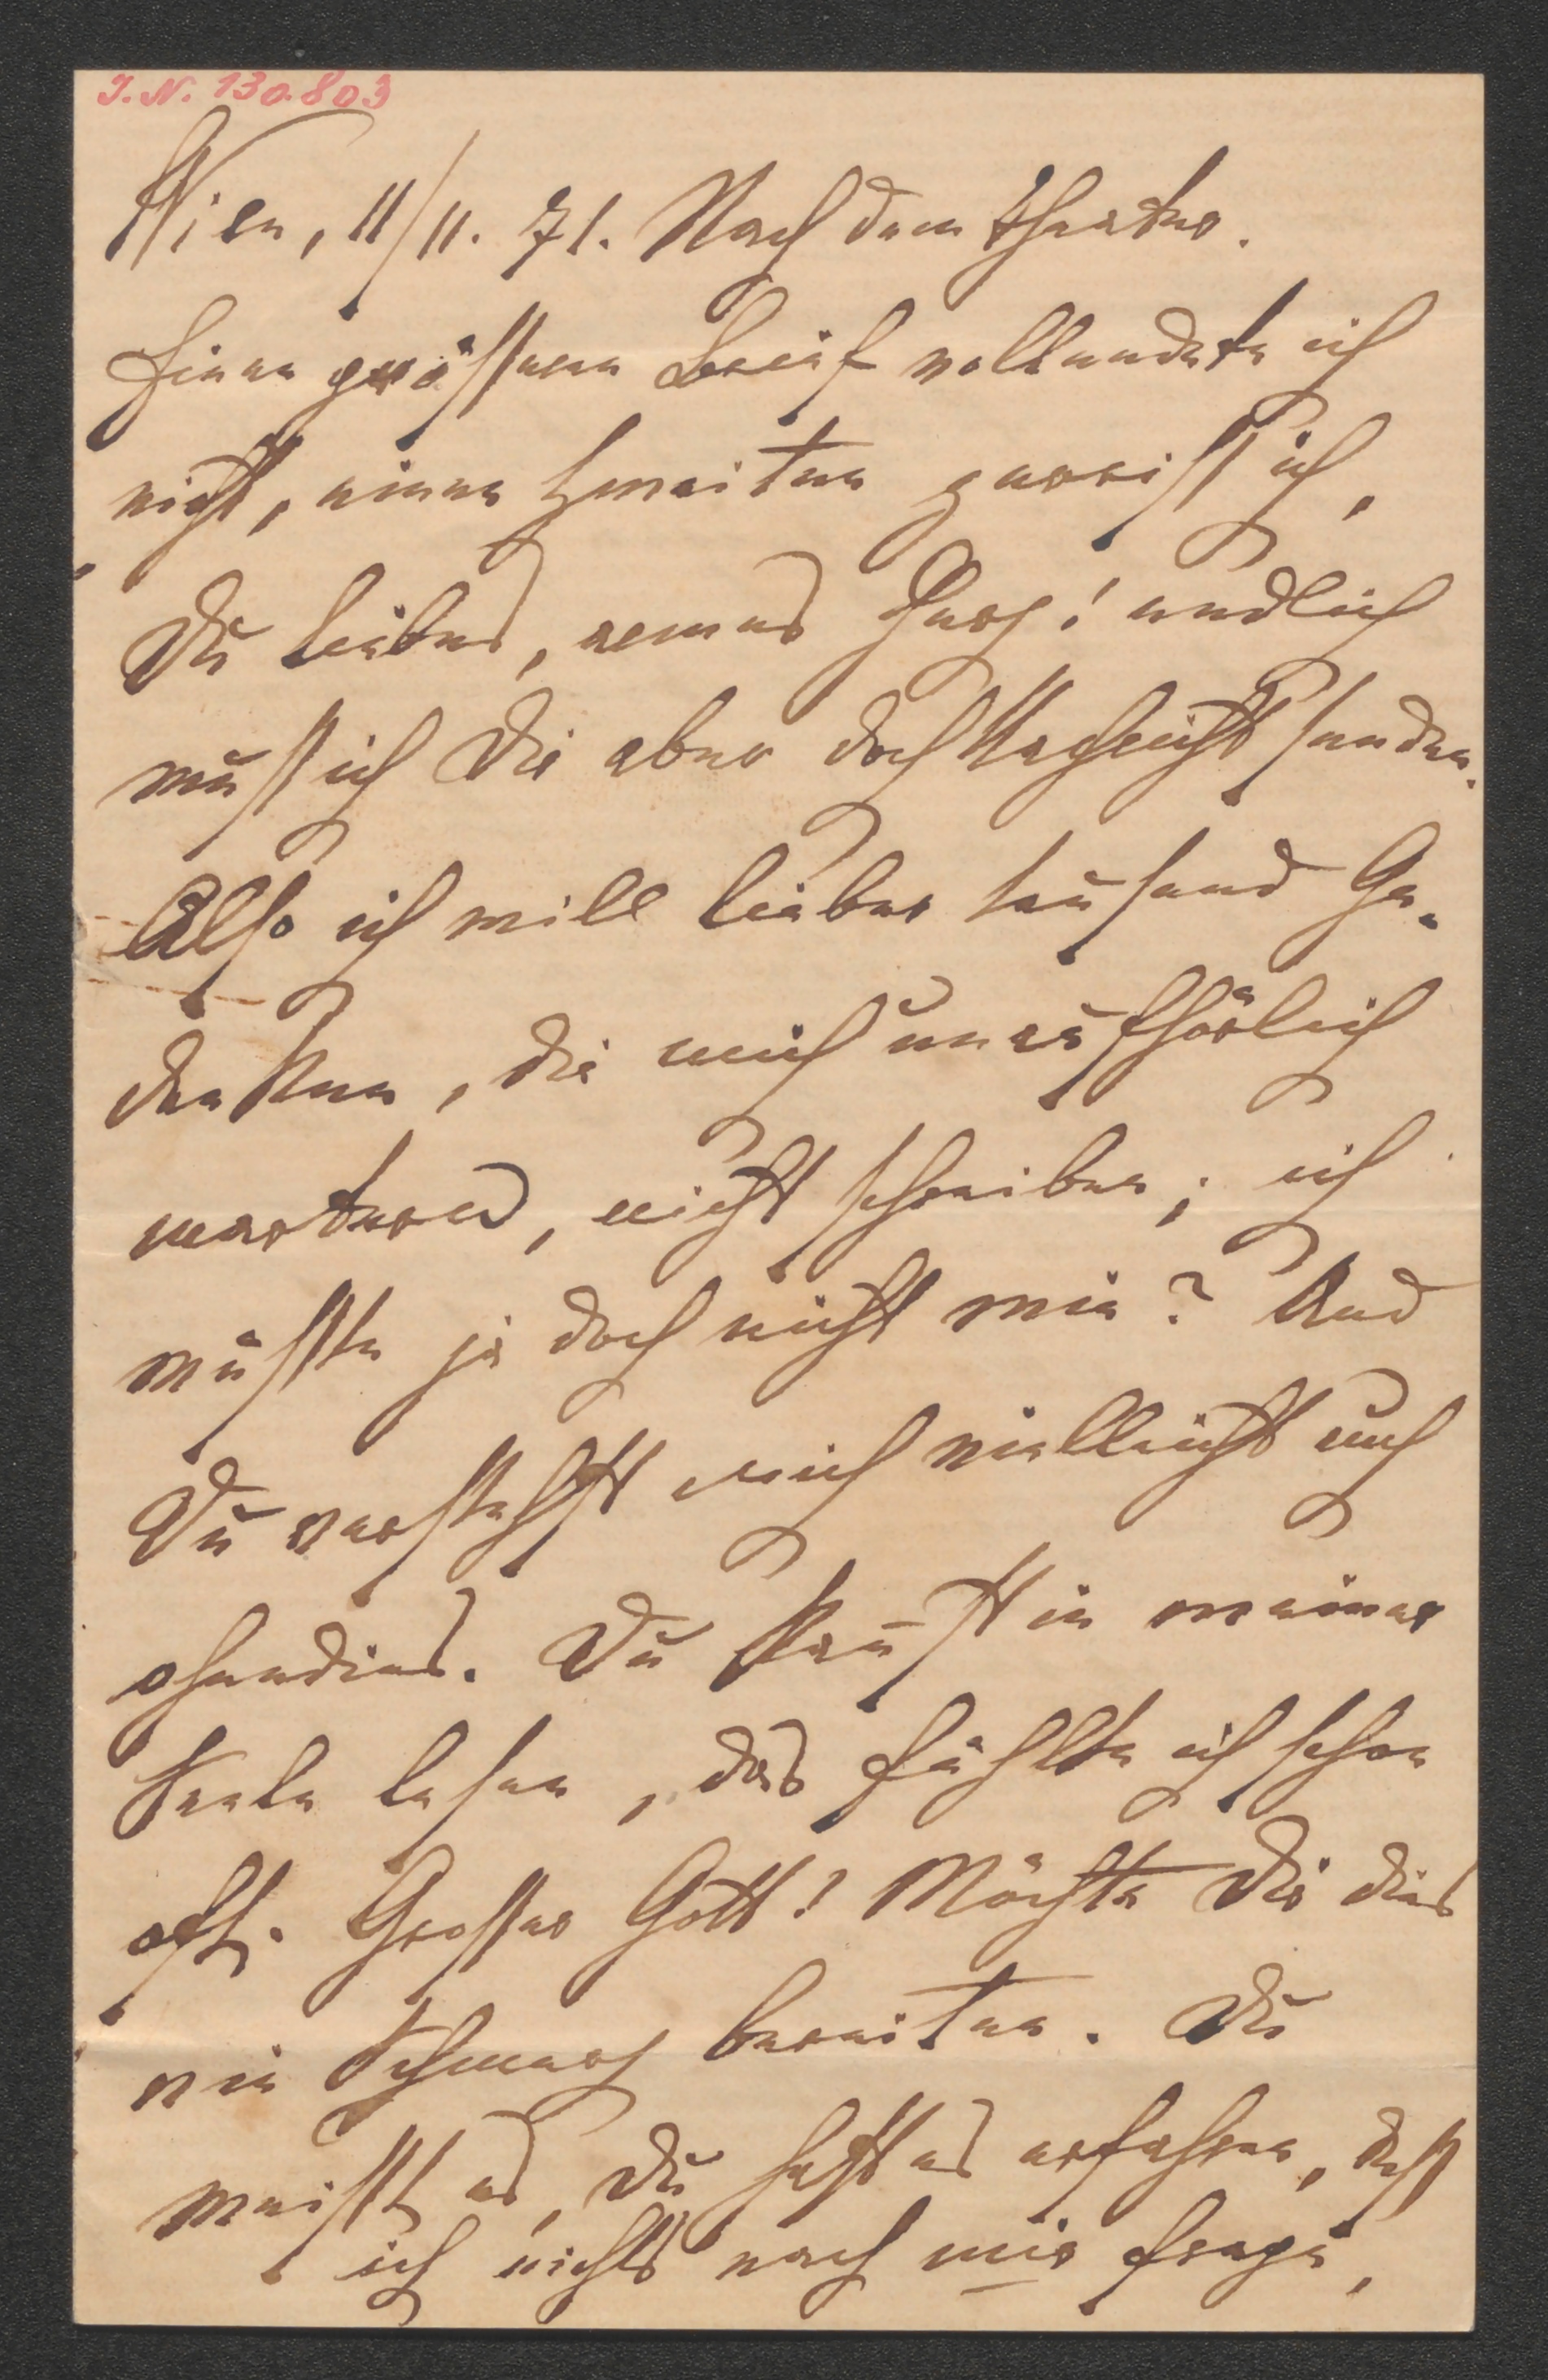 J. N. 130.803
Wien, 11/11. 71. Nach dem Theater.
Einen größeren Brief vollendete ich
nicht, einen zweiten zerriß ich,
Du liebes, armes Herz! endlich
muß ich Dir aber doch Nachricht senden.
Also ich will lieber tausend Ge-
danken, die mich unaufhörlich
martern, nicht schreiben; ich
wüßte ja doch nicht wie? Und
Du verstehst mich vielleicht auch
ohne dies. Du kannst in meiner
Seele lesen, das fühlte ich schon
oft. Großer Gott! Möchte Dir dies
nie Schmerz bereiten. Du
weißt es, Du hast es erfahren, daß
ich nichts nach mir frage,